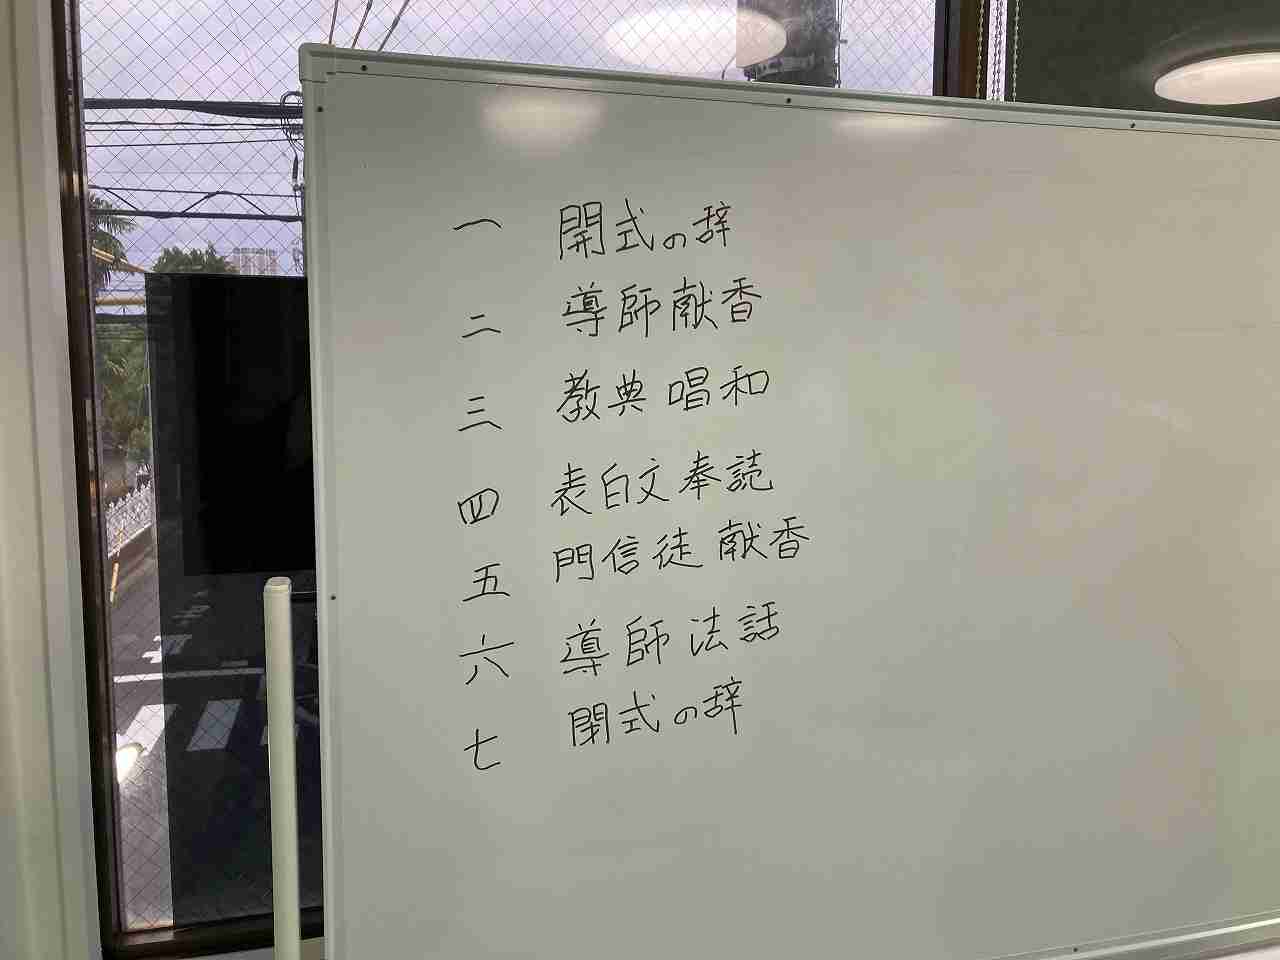 一 開式の辞
二 導師献香
三 教典唱和
四 表白文奉読
五 門信徒献香
六 導師法話
七 閉式の辞